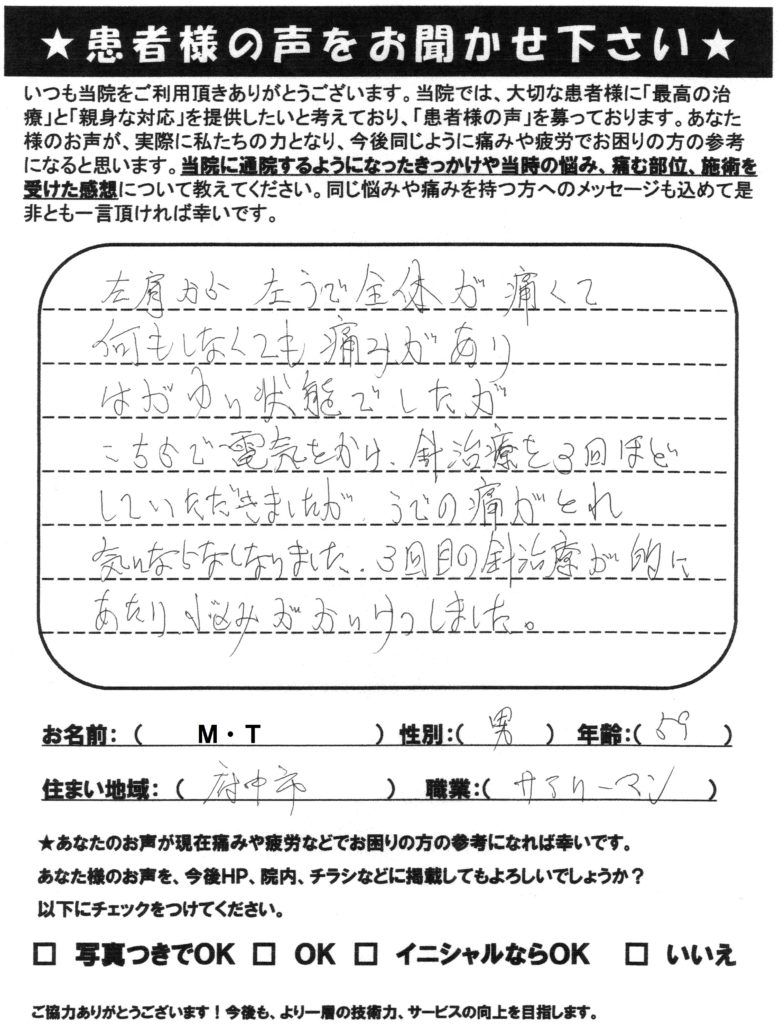 ★患者様の声をお聞かせ下さい★
いつも当院をご利用頂きありがとうございます。当院では、大切な患者様に「最高の治
療」と「親身な対応」を提供したいと考えており、「患者様の声」を募っております。あなた
様のお声が、実際に私たちの力となり、今後同じように痛みや疲労でお困りの方の参考
になると思います。当院に通院するようになったきっかけや当時の悩み、痛む部位、施術を
受けた感想について教えてください。同じ悩みや痛みを持つ方へのメッセージも込めて是
非とも一言頂ければ幸いです。
左肩から 左うで全体が痛くて
何もしなくても痛みがあり
はがゆい状態でしたが
こちらで電気をかけ、針治療を3回ほど
していただきましたが、うでの痛がとれ
気にならなくなりました、3回目の針治療が的に
あたり、悩みがかいけつしました。
お名前:( M・T ) 性別:( 男 ) 年齢:( 59 )
住まい地域:( 府中市 ) 職業:( サラリーマン )
★あなたのお声が現在痛みや疲労などでお困りの方の参考になれば幸いです。
あなた様のお声を、今後HP、院内、チラシなどに掲載してもよろしいでしょうか?
以下にチェックをつけてください。
□ 写真つきでOK □ OK □ イニシャルならOK □ いいえ
ご協力ありがとうございます!今後も、より一層の技術力、サービスの向上を目指します。